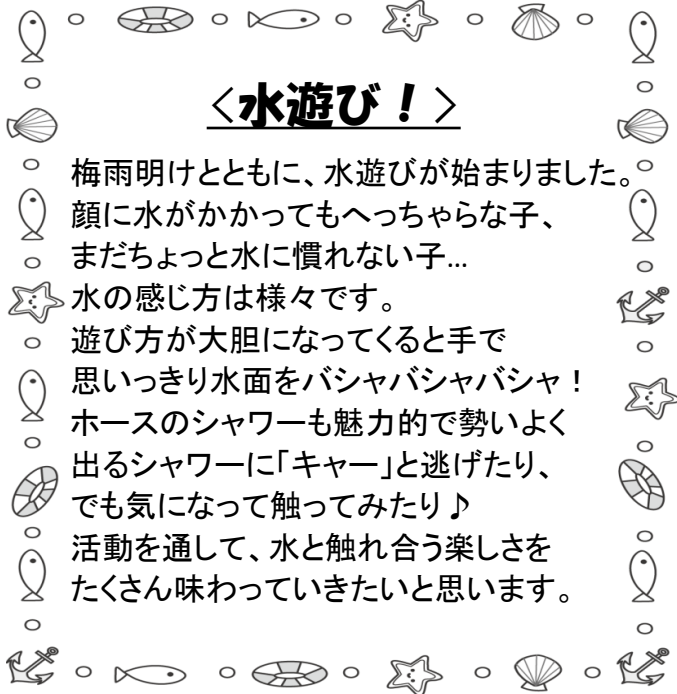 <水遊び！>
梅雨明けとともに、水遊びが始まりました。
顔に水がかかってもへっちゃらな子、
まだちょっと水に慣れない子…
水の感じ方は様々です。
遊び方が大胆になってくると手で
思いっきり水面をバシャバシャバシャ！
ホースのシャワーも魅力的で勢いよく
出るシャワーに「キャー」と逃げたり、
でも気になって触ってみたり♪
活動を通して、水と触れ合う楽しさを
たくさん味わっていきたいと思います。